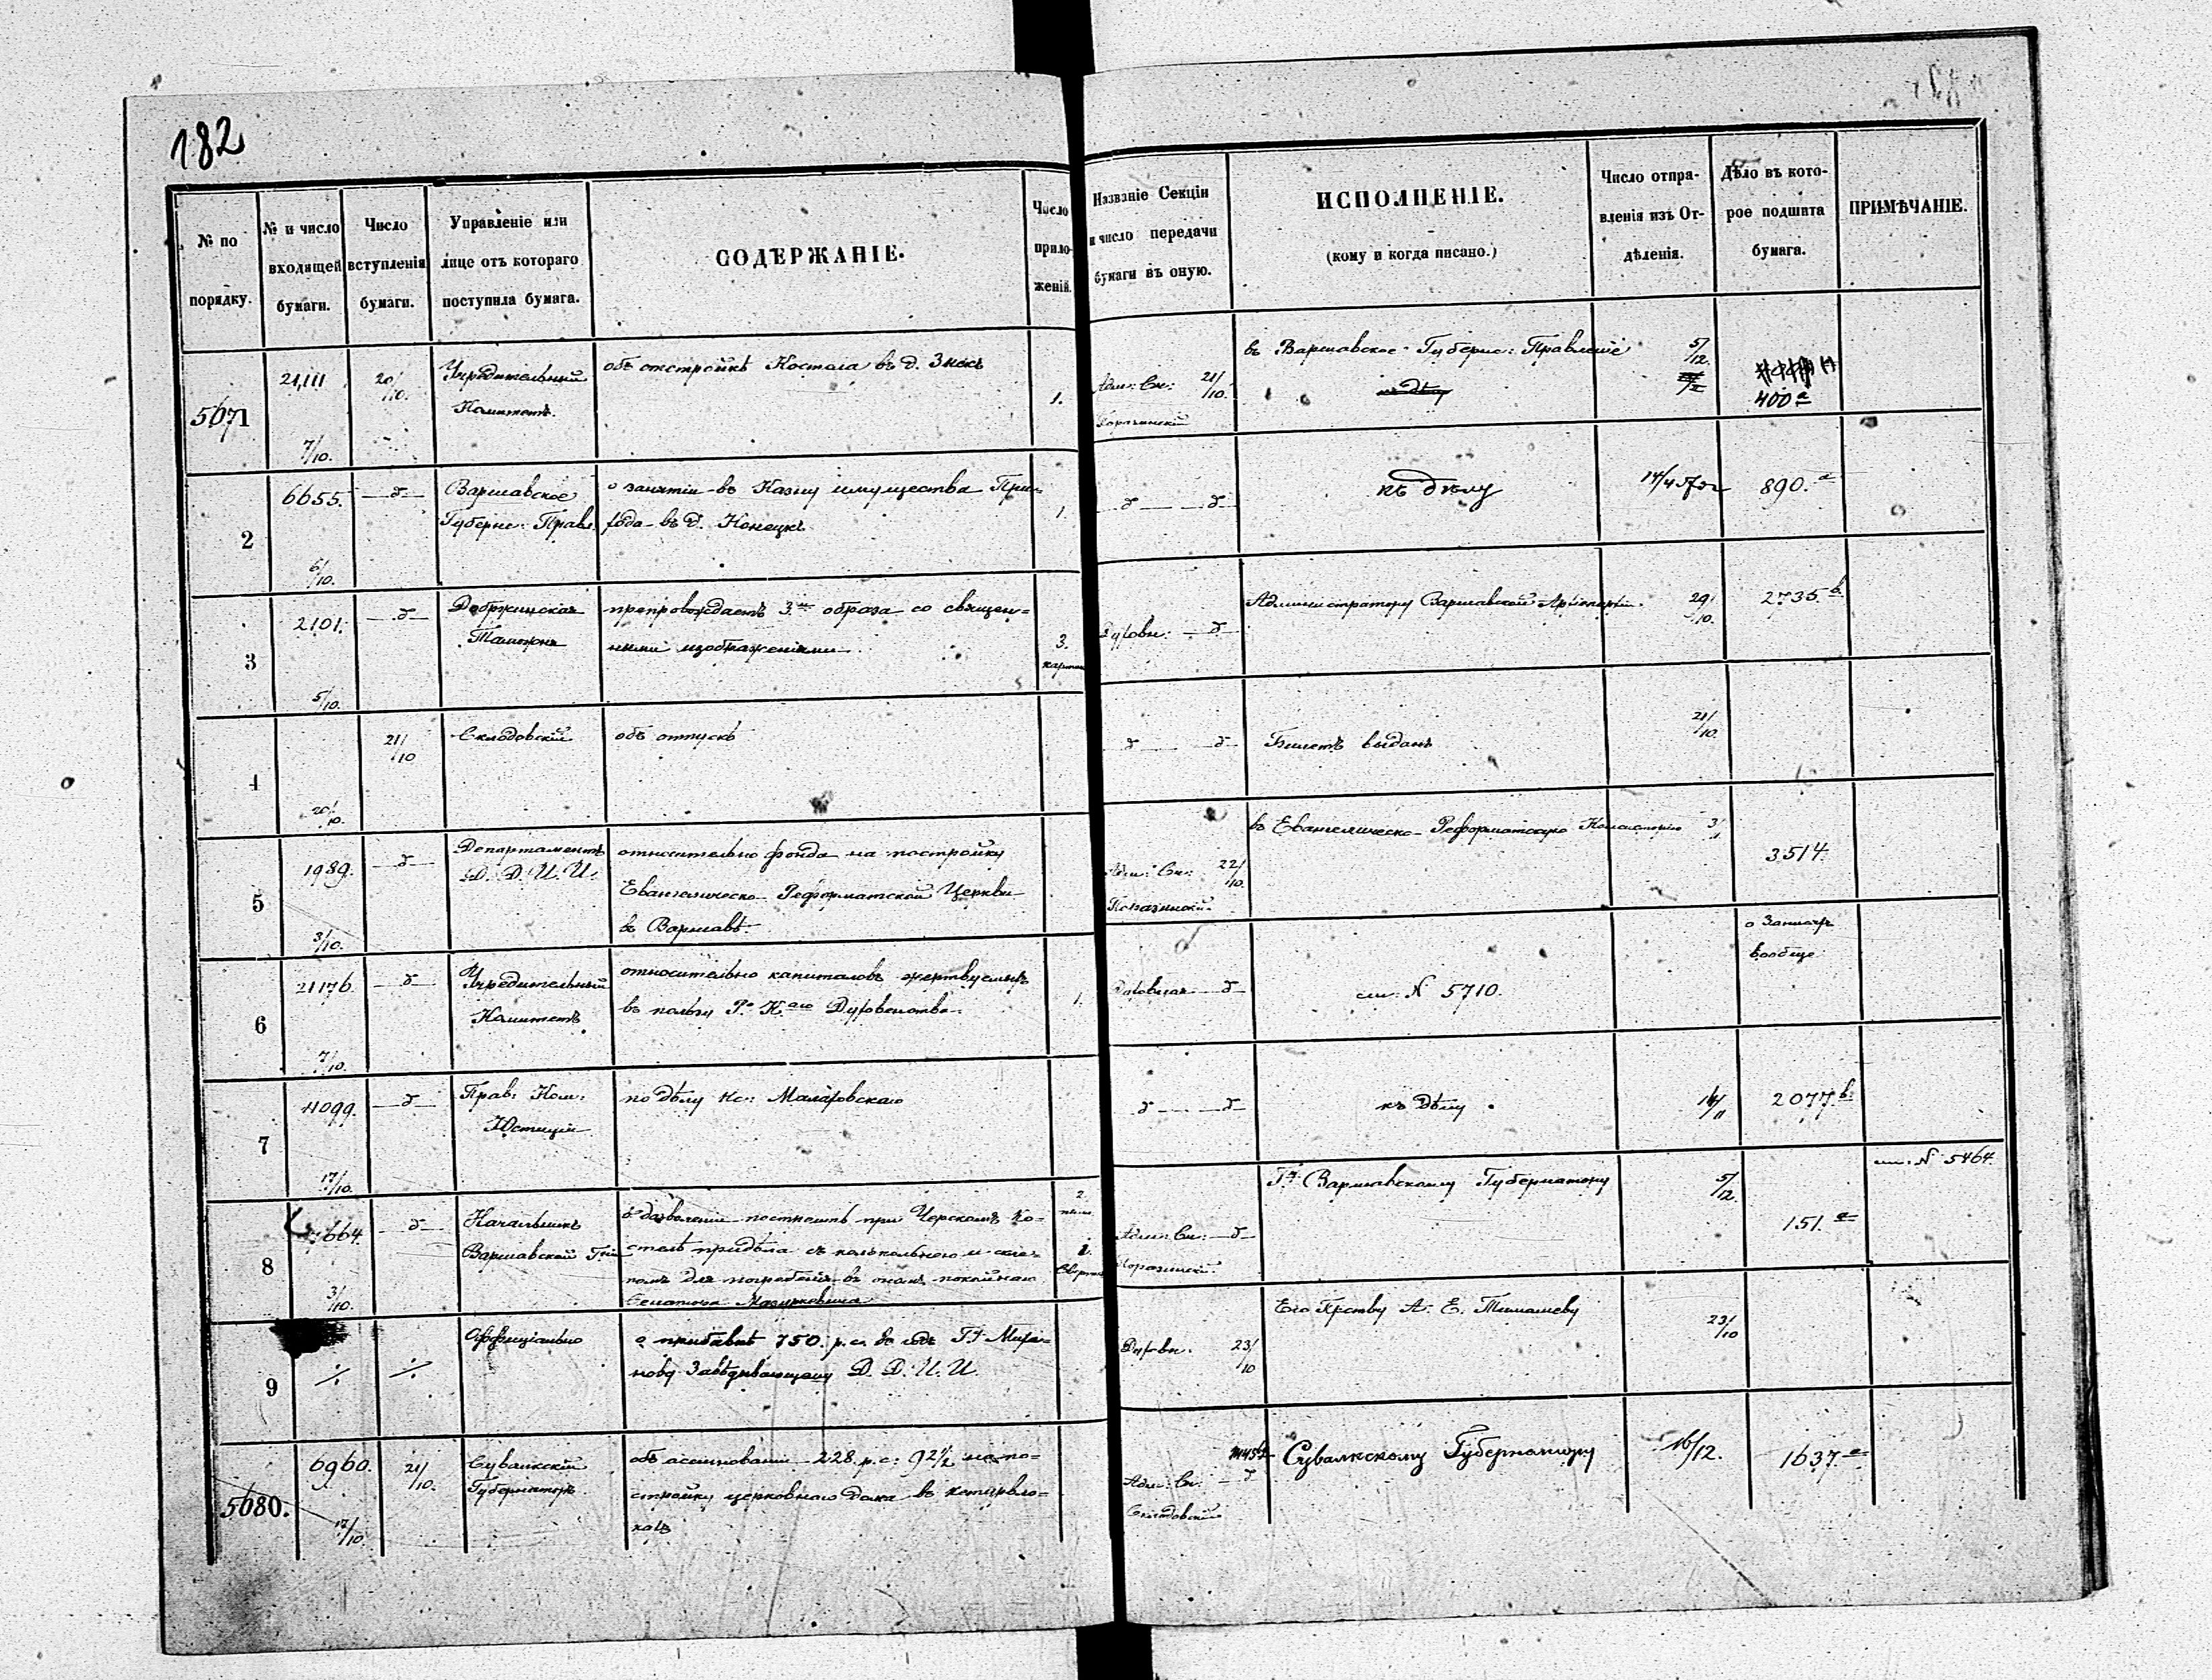 182
№ по порядку.
№ и число входящей бумаги.
Число вступленія бумаги.
Управленіе или лице отъ котораго поступила бумага.
СОДЕРЖАНІЕ.
Число приложеній.
Названіе Секціи и число передачи бумаги въ оную.
ИСПОЛНЕНІЕ.
(кому и когда писано.)
Число отправленія изъ Отдѣленія.
Дѣло въ которое подшита бумага.
ПРИМѢЧАНІЕ.
5671
21,111
7/10.
20/10.
Учредительный
Комитетъ.
объ отстройкѣ Костела въ д.
1.
Адм: Ск: 21/10.
въ Варшавское Губерн: Правленіе
къ дѣлу
5/12.
400 а
2
6655.
6/10.
Варшавское
Губерн: Правл.
о занятіи въ Казну имущества При-
хода въ д. Конецкъ
1
къ дѣлу
890. а
3
2101.
5/10.
Добржинская
Таможня
препровождаетъ 3 образа со священ-
ными изображеніями
3.
Духовн:
Администратору Варшавской Архіепархіи.
29/10.
2735. в
4
20/10.
21/10
Склодовскій
объ отпускѣ
Билетъ выданъ
21/10.
5
1989.
3/10.
Департаментъ
Д. Д. И. И.
относительно фонда на постройку
Евангелическо-Реформатской Церкви
въ Варшавѣ.
Адм: Ск: 22/10.
въ Евангелическо-Реформатскую Консисторію
3514.
6
21176.
7/10.
Учредительный
Комитетъ
относительно капиталовъ жертвуемыхъ
въ пользу Р. К аго Духовенства.
1.
Духовная
см: N 5710.
о
вообще
7
11099.
17/10.
Прав: Ком:
Юстиціи
по дѣлу Кс: Малаховскаго
къ дѣлу
14/11
2077 в.
8
664.
3/10.
Начальникъ
Варшавской Губ
о дозволеніи построить при Черскомъ Ко-
стелѣ придѣла съ колокольнею и скле-
помъ для погребенія въ ономъ покойнаго
Сенатора
2
1.
Адм: Ск:
Г. Варшавскому Губернатору
5/12.
151. а
см: N 5464.
9
Оффиціально
о прибавкѣ 750. р. с. въ годъ Г. Мира-
нову Завѣдывающему Д. Д. И. И.
Духовн. 23/10
Его Прству А. Е. Тимашеву
23/10
5680.
6960.
17/10.
21/10.
Сувалкскій
Губернаторъ
объ ассигнованіи 228. р. с: 92 1/2 на по-
стройку церковнаго дома въ
Адм: Ск:
Склодовскій
Сувалкскому Губернатору
16/12.
1637. а